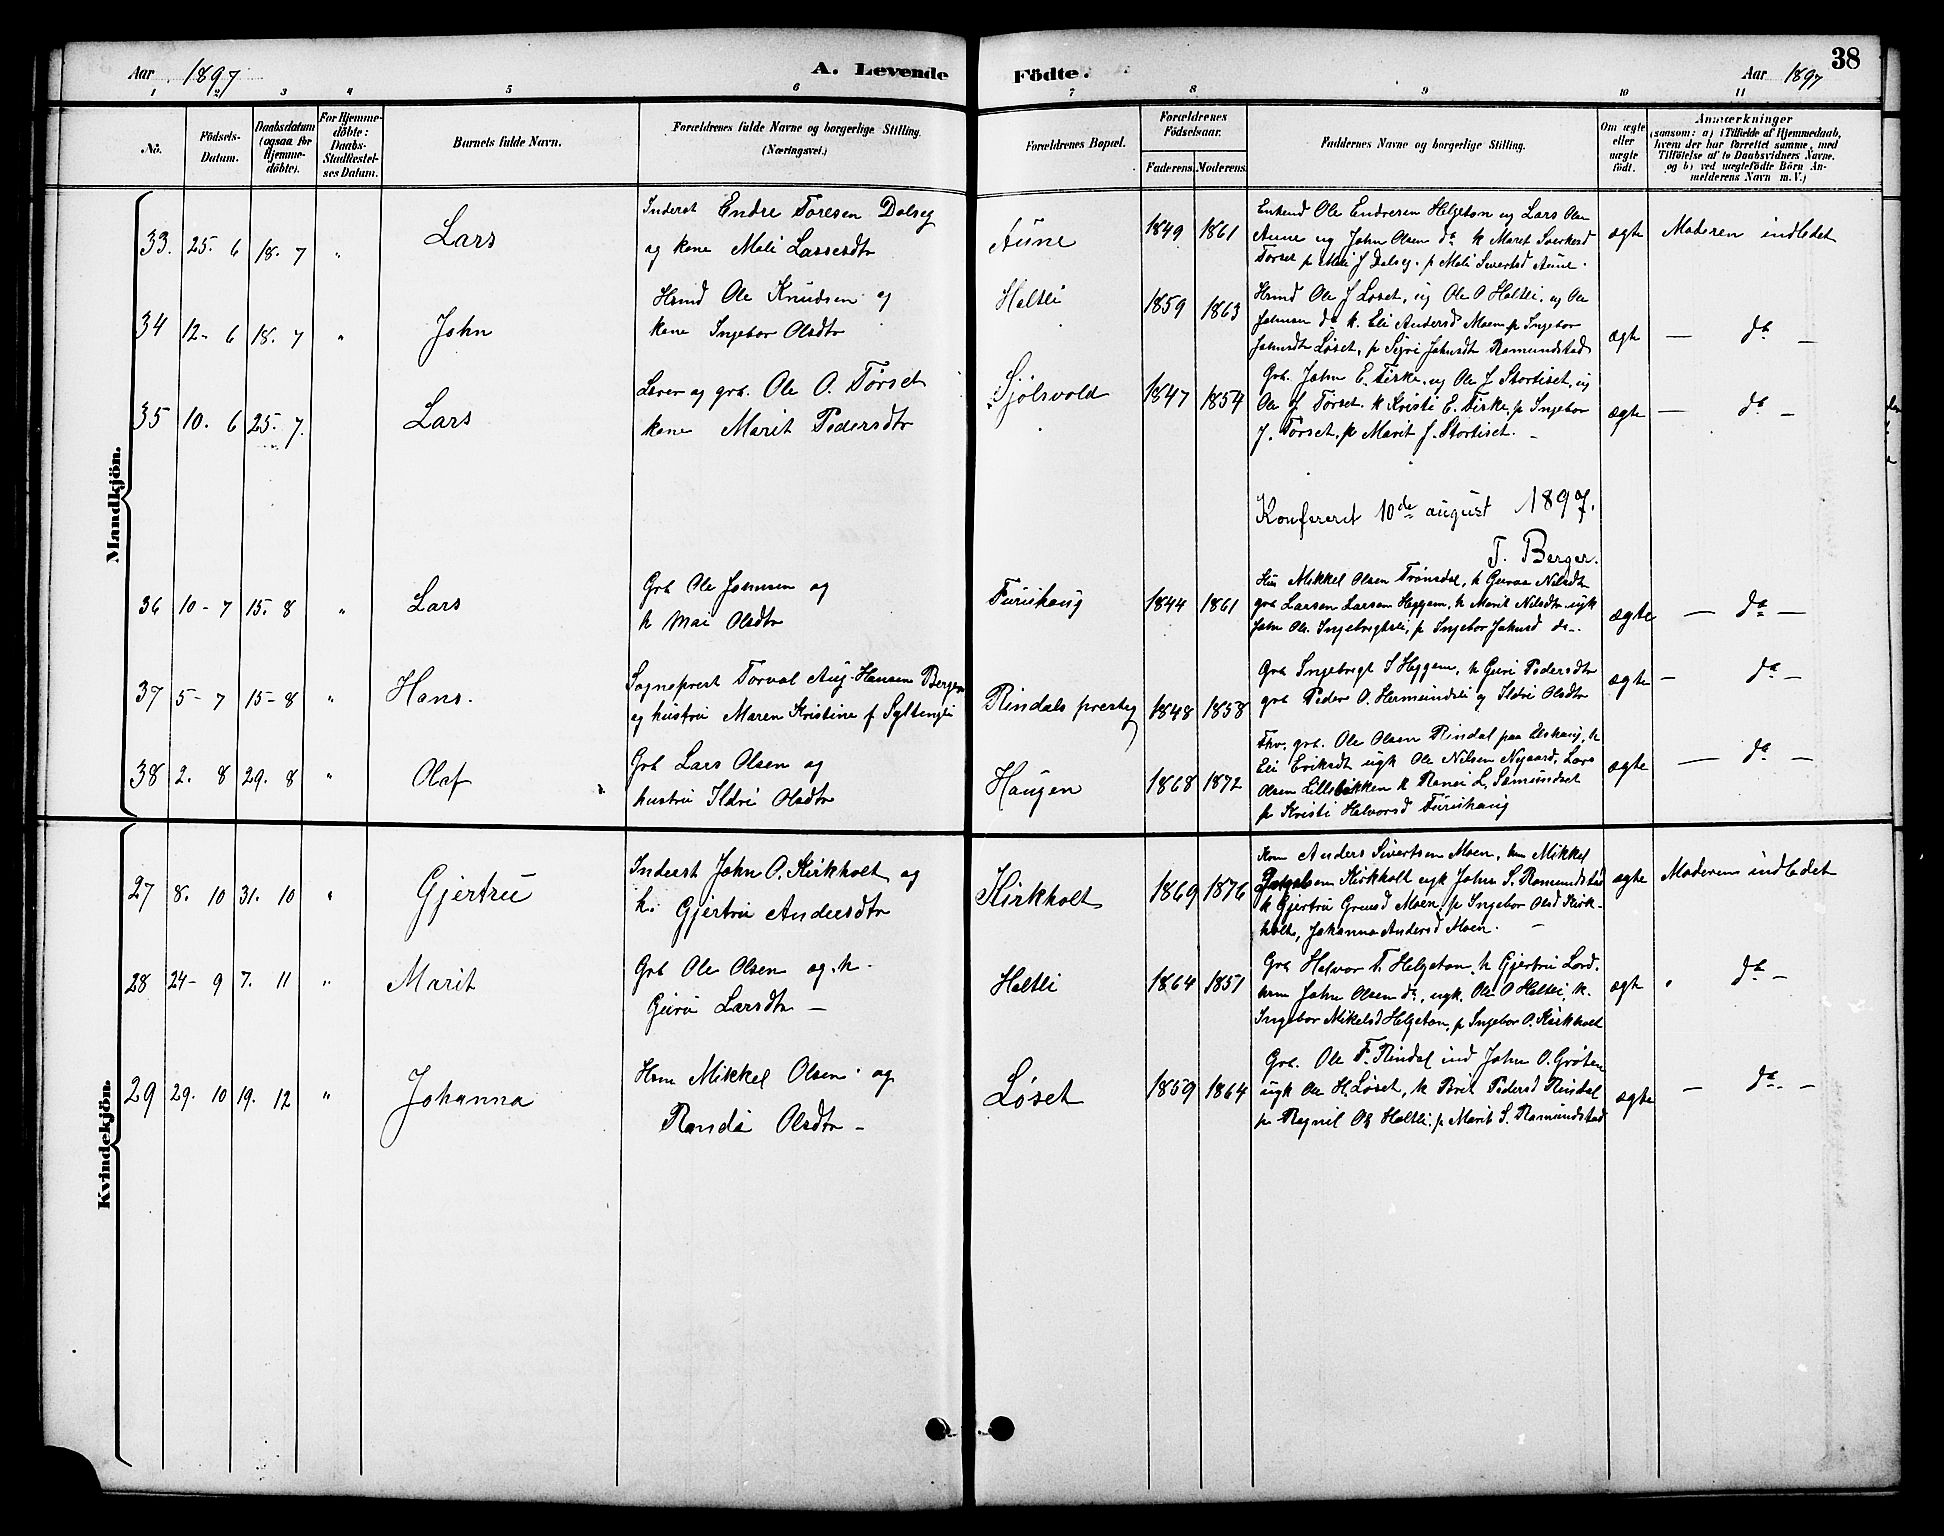 Aar 1897
A. Levende
Födte.
Aar 1897
38
1 2 3 4 5 6
7 8 9 10 11
No.
Födsels-
Datum.
Daabsdatum
(ogsaa for
Hjemme-
döbte).
For Hjemme-
döbte:
Daabs-
Stadfæstel-
ses Datum.
Barnets fulde Navn.
Forældrenes fulde Navne og borgerlige Stilling.
(Næringsvei.)
Forældrenes Bopæl.
Forældrenes
Födselsaar.
Faderens
Moderens
Faddernes Navne og borgerlige Stilling.
Om ægte
eller
uægte
födt.
Anmærkninger
(saasom: a) i Tilfælde af Hjemmedaab,
hvem der har forrettet samme, med
Tilföielse af to Daabsvidners Navne.
og b) ved uægtefödte Börn An-
melderens Navn m. V.)
Mandkjön.
33. 25. 6 18. 7 " Lars
Inderst Endre Toresen Dalseg
og kone Mali Larsesdtr
Aune 1849 1861
Enkend Ole Endresen Helgeton ug Lars Olsen
Aune ug John Olsen do k Maret Sverkesd
Torset p Mali J Dalseg. p Mali Sivertsd Aune.
ægte Moderen indledet
34 12- 6 18. 7 " John
Hsmd Ole Knudsen og
kone Ingebor Olsdtr
Holtli 1859 1863
Hsmd Ole J Løset, ug Ole O Holtli, ug Ole
Johnsen do k. Eli Andersd Moen p Ingebor
Johnsdtr Løset, p Sigri Johnsdt Romundstad
ægte — do —
35 10. 6 25. 7. Lars
Lærer og grb. Ole O. Tørset
kone Marit Pedersdtr
Sjølsvold 1847 1854
Grb. John E. Firke, ug Ole J Stortiset, ug
Ole J Tørset. k Kristi E. Firke, p Ingebor
J. Torset, p Marit J. Stortiset. -
ægte — do -
Konfereret 10de august 1897.
T. Berger.
36 10- 7 15. 8 " Lars
Grb Ole Johnsen og
h Mari Olsdtr
Furuhaug 1844 1861
Hus Mikkel Olsen Tronsdal, h Guroa Nilsdtr
grb Larsen Larsen Heggem, h Marit Nilsdtr ugk
John Ols. Ingebregtsli, p Ingebor Johnsd do.
ægte — do —
37 5- 7 15- 8 " Hans.
Sogneprest Torval Aug. Hansen Berger
og hustru Maren Kristine f Syltengli
Rindals presteg 1848 1858
Grb Ingebregt I Heggem, h Guri Pedersdtr
grb Peder O. Hermundsli og Ildri Olsdtr
ægte - do -
38 2. 8 29. 8 " Olaf
Grb Lars Olsen og
hustru Ildri Olsdtr
Haugen 1868 1872
Fhv. grb. Ole Olsen Rindal paa Elshaug, h
Eli Eriksdt ugk Ole Nilsen Nygaard, Lars
Olsen Lillebækken k Ranei L. Samundset
p Kristi Halvorsd Furuhaug
ægte — do —
Kvindekjön.
27 8. 10 31. 10 " Gjertru
Inderst John O. Kirkholt og
k. Gjertru Andersdtr
Kirkholt 1869 1876
Hsm Anders Sivertsen Moen, hsm Mikkel
Kirkholt ugk John S. Romundstad
k Gjertru Grensd Moen, p Ingebor Olsd Kirk-
holt, Johanna Andersd Moen. -
ægte Moderen indledet
28 24- 9 7. 11 " Marit
Grb Ole Olsen og h.
Guru Larsdtr —
Holtli 1864 1851
Grb Halvor T. Helgeton, h Gjertru Lard.
hsm John Olsen do, ugk. Ole O Holtli, k.
Ingebor Mikelsd Helgeton, p Ingebor O. Kirkholt
ægte " do -
29 29. 10 19. 12 " Johanna
Hsm Mikkel Olsen og
Randi Olsdtr -
Løset 1859 1864
Grb. Ole F. Rindal ind John O. Grøten
ugk Ole H. Løset, k Brit Pedersd Rindal
p. Ragnil Ols Holtli, p Marit S. Romundstad
ægte — do. -